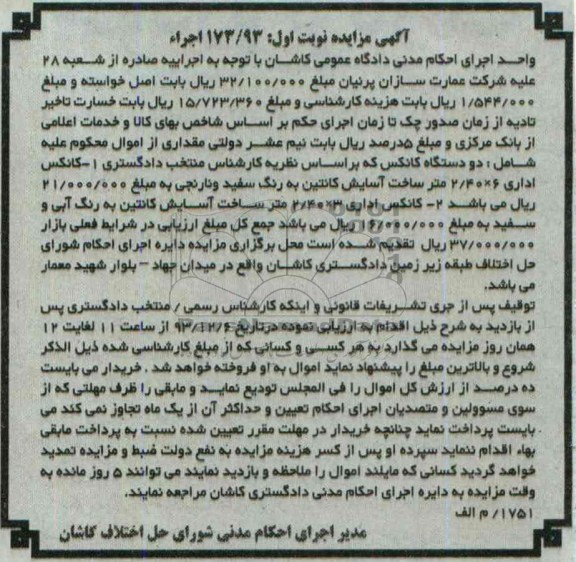 آگهی مزایده نوبت اول: ۱۷۳/۹۳ اجراء
واحد اجرای احکام مدنی دادگاه عمومی کاشان با توجه به اجراییه صادره از شعبه ۲۸
علیه شرکت عمارت سازان پرنیان مبلغ ۳۲/۱۰۰/۰۰۰ ریال بابت اصل خواسته و مبلغ
۱/۵۴۴/۰۰۰ ریال بابت هزینه کارشناسی و مبلغ ۱۵/۷۲۳/۳۶۰ ریال بابت خسارت تاخیر
تادیه از زمان صدور چک تا زمان اجرای حکم بر اساس شاخص بهای کالا و خدمات اعلامی
از بانک مرکزی و مبلغ ۵درصد ریال بابت نیم عشر دولتی مقداری از اموال محکوم علیه
شامل : دو دستگاه کانکس که براساس نظریه کارشناس منتخب دادگستری ۱-کانکس
اداری ۶×۲/۴۰ متر ساخت آسایش کانتین به رنگ سفید ونارنجی به مبلغ ۲۱/۰۰۰/۰۰۰
ریال می باشد ۲- کانکس اداری ۳×۲/۴۰ متر ساخت آسایش کانتین به رنگ آبی و
سفید به مبلغ ۱۶/۰۰۰/۰۰۰ ریال می باشد جمع کل مبلغ ارزیابی در شرایط فعلی بازار
۳۷/۰۰۰/۰۰۰ ریال تقدیم شده است محل برگزاری مزایده دایره اجرای احکام شورای
حل اختلاف طبقه زیر زمین دادگستری کاشان واقع در میدان جهاد – بلوار شهید معمار
می باشد.
توقیف پس از جری تشریفات قانونی و اینکه کارشناس رسمی / منتخب دادگستری پس
از بازدید به شرح ذیل اقدام به ارزیابی نموده درتاریخ ۹۳/۱۲/۶ از ساعت ۱۱ لغایت ۱۲
همان روز مزایده می گذارد به هر کسی و کسانی که از مبلغ کارشناسی شده ذیل الذکر
شروع و بالاترین مبلغ را پیشنهاد نماید اموال به او فروخته خواهد شد . خریدار می بایست
ده درصد از ارزش کل اموال را فی المجلس تودیع نماید و مابقی را ظرف مهلتی که از
سوی مسوولین و متصدیان اجرای احکام تعیین و حداکثر آن از یک ماه تجاوز نمی کند می
بایست پرداخت نماید چنانچه خریدار در مهلت مقرر تعیین شده نسبت به پرداخت مابقی
بهاء اقدام ننماید سپرده او پس از کسر هزینه مزایده به نفع دولت ضبط و مزایده تمدید
خواهد گردید کسانی که مایلند اموال را ملاحظه و بازدید نمایند می توانند ۵ روز مانده به
وقت مزایده به دایره اجرای احکام مدنی دادگستری کاشان مراجعه نمایند.
۱۷۵۱/ م الف
مدیر اجرای احکام مدنی شورای حل اختلاف کاشان